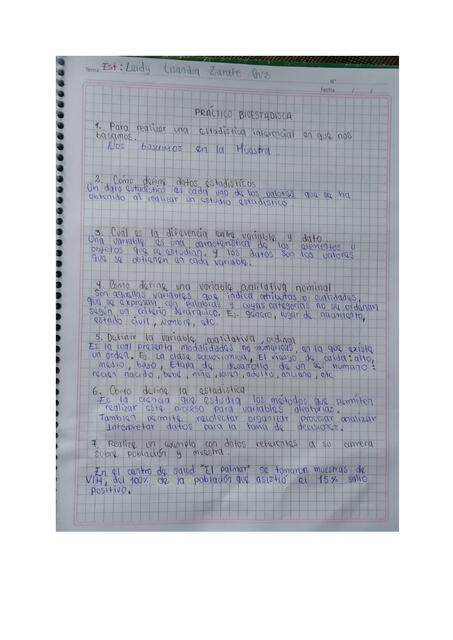 Est: Leidy Lisandra Zarate
N°
Fecha / /
PRÁCTICO BIOESTADISCA
1. Para realizar una estadistica inferencial en que nos
basamos.
Nos basamos en la Muestra
2. Como define datos estadisticos
Un dato estadistico es cada uno de los valores que se ha
obtenido al realizar un estudio estadistico
3. Cuál es la diferencia entre variable y dato
Una variable es una caracteristica de los elementos u
objetos que se estudian. y los datos son los valores
que se obtienen en cada variable.
4. Como define una variable cualitativa nominal
Son aquellas variables que indica atributos o cualidades,
que se expresan con palabras y cuyas categorias no se ordenan
según un criterio jerárquico. Ej. Género, lugar de nacimiento,
estado civil, nombre, etc.
5. Definir la variable cualitativa ordinal
Es la cual presenta modalidades no numericas, en la que existe
un orden. Ej. La clase socioeconomica, El riesgo de caida: alto,
medio, bajo, Etapa de desarrollo de un ser humano:
recien nacido, bebé, niño, joven, adulto, anciano, etc
6. Como define la estadistica
Es la ciencia que estudia los metodos que permiten
realizar este proceso para variables aleatorias.
Tambien permite recolectar organizar procesar analizar
interpretar datos para la toma de decisiones.
7. Realize un ejemplo con datos referentes a su carrera
sobre población y muestra.
En el centro de salud "El palmar" se tomaron muestras de
VIH, del 100% de la población que asistió el 15% salio
positivo.